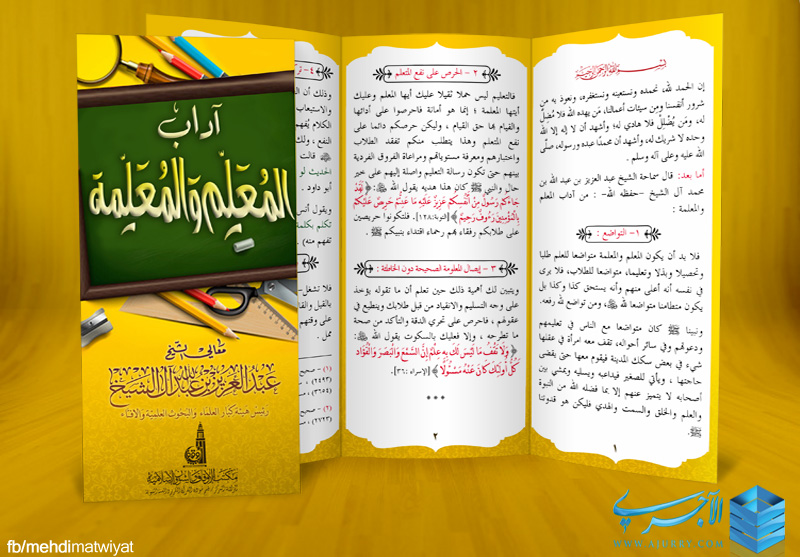 آداب
المُعَلِّم وَالمُعَلِّمة
معالي الشيخ
عبد العزيز بن عبد الله آل الشيخ
رئيس هيئة كبار العلماء والبحوث العلمية والإفتاء
بسم الله الرحمن الرحيم
إن الحمد لله، نحمده ونستعينه ونستغفره، ونعوذ به من
شرور أنفسنا ومن سيئات أعمالنا، مَن يهده الله فلا مُضِلَّ
له، ومَن يُضْلِلْ فلا هادي له؛ وأشهد أن لا إله إلا الله
وحده لا شريك له، وأشهد أن محمدًا عبده ورسوله، صلَّى
الله عليه وعلى آله وسلم .
أما بعد: قال سماحة الشيخ عبد العزيز بن عبد الله بن
محمد آل الشيخ -حفظه الله- : من آداب المعلم
والمعلمة :
١- التواضع :
فلا بد أن يكون المعلم والمعلمة متواضعا للعلم طلبا
وتحصيلا وبذلا وتعليما، متواضعا للطلاب، فلا يرى
في نفسه أنه أعلى منهم وأنه يستحق كذا وكذا بل
يكون متطامنا متواضعا لله ﷻ، ومن تواضع لله رفعه.
ونبينا ﷺ كان متواضعا مع الناس في تعليمهم
ودعوتهم وفي سائر أحواله، تقف معه امرأة في عقلها
شيء في بعض سكك المدينة فيقوم معها حتى يقضى
حاجتها ، ويأتي للصغير فيداعبه ويسليه ويمشي بين
أصحابه لا يتميز عنهم إلا بما فضله الله من النبوة
والعلم والخلق والسمت والهدي فليكن هو قدوتنا
ﷺ.
١
٢ - الحرص على نفع المتعلم
فالتعليم ليس حملا ثقيلا عليك أيها المعلم وعليك
أيتها المعلمة ؛ إنما هو أمانة فاحرصوا على أدائها
والقيام بها حق القيام ، وليكن حرصكم دائما على
نفع المتعلم وهذا يتطلب منكم تفقد الطلاب
واختبارهم ومعرفة مستوياتهم ومراعاة الفروق الفردية
بينهم حتى تكون رسالة التعليم واصلة إليهم على خير
حال والنبي ﷺ كان هذا هديه يقول الله ﷻ: ﴿لَقَدْ
جَاءَكُمْ رَسُولٌ مِنْ أَنْفُسِكُمْ عَزِيزٌ عَلَيْهِ مَا عَنِتُّمْ حَرِيصٌ عَلَيْكُمْ
بِالْمُؤْمِنِينَ رَءُوفٌ رَحِيمٌ﴾ [التوبة:١٢٨]. فلتكونوا حريصين
على طلابكم ورفقاء بهم رحماء اقتداء بنبيكم ﷺ .
٣ - إيصال المعلومة الصحيحة دون الخاطئة :
ويتبين لك أهمية ذلك حين تعلم أن ما تقوله يؤخذ
على وجه التسليم والانقياد من قبل طلابك وينطبع في
عقولهم ، فاحرص على تحري الدقة والتأكد من صحة
ما تطرحه ، وإلا فعليك بالسكوت يقول الله ﷻ:
﴿وَلَا تَقْفُ مَا لَيْسَ لَكَ بِهِ عِلْمٌ إِنَّ السَّمْعَ وَالْبَصَرَ وَالْفُؤَادَ
كُلُّ أُولَئِكَ كَانَ عَنْهُ مَسْئُولًا﴾ [الإسراء:٣٦].
* * *
٢
وذلك أن
والاستيعاب
الكلام يُفهم
النفع ، ولك
ﷺ قالت
الحديث لو
أبو داود .
ويقول أنس
تكلم بكلمة
تفهم عنه) .
فلا تشغل
بالقيل والقال
على وقتهم
ممل .
(١) - صحيح
(٢٤٩٣)
(٣٦٥٤)
(٢) - صحيح
(٢٧٢٣)
fb/mehdimatwiyat
الآجري
WWW.AJURRY.COM